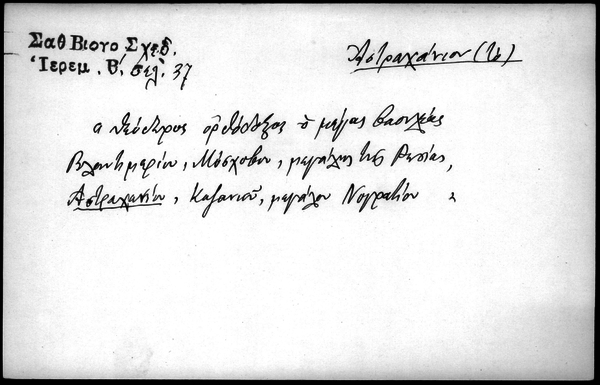 Σαθ Βιογο Σχεδ.
Ἱερεμ. Β΄. σελ. 37
Ἀστραχάνιον (τὸ)
ὀρθόδοξος ὁ μέγας βασιλεὺς
Βλαντιμερίου, Μόσχοβου, μεγάλης τῆς Ρουσίας,
Ἀστραχανίου, Καζανίου, μεγάλου Νογρατίου